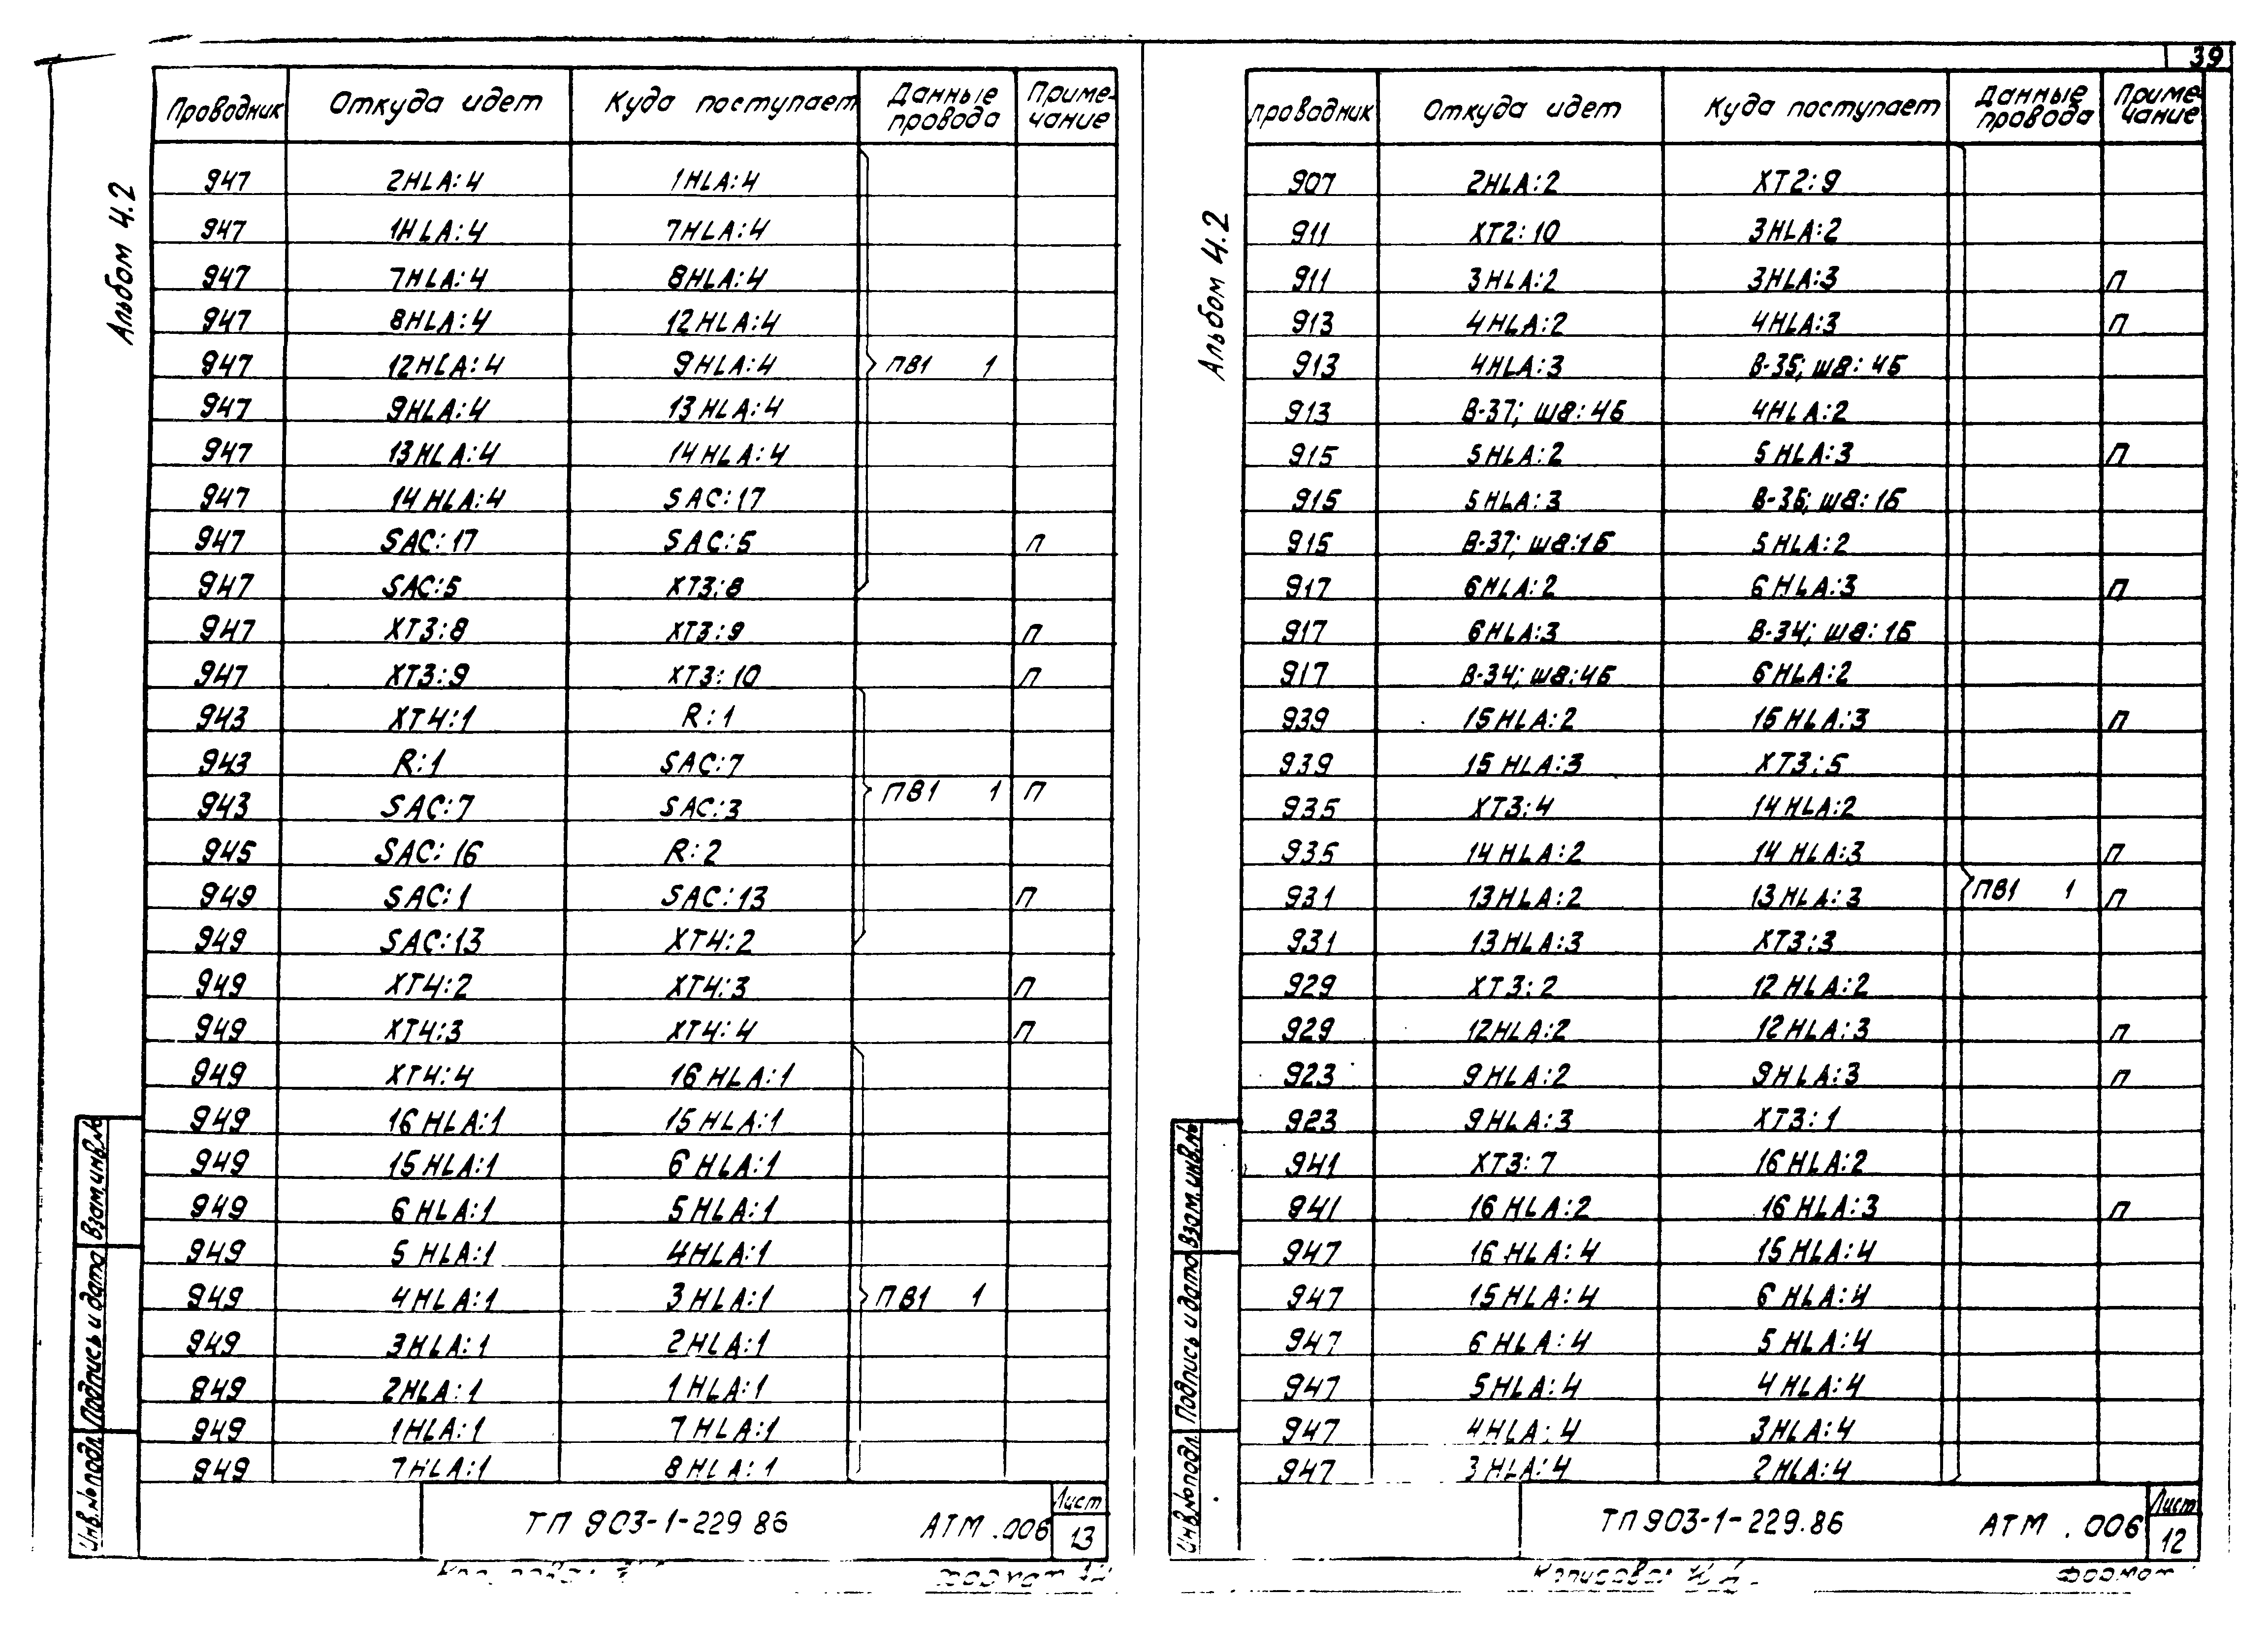 39
Альбом 4.2
Проводник Откуда идет Куда поступает Данные провода Приме-чание
947 2HLA:4 1HLA:4
947 1HLA:4 7HLA:4
947 7HLA:4 8HLA:4
947 8HLA:4 12HLA:4
947 12HLA:4 9HLA:4 ПВ1 1
947 9HLA:4 13HLA:4
947 13HLA:4 14HLA:4
947 14HLA:4 SAC:17
947 SAC:17 SAC:5 П
947 SAC:5 XT3:8
947 XT3:8 XT3:9 П
947 XT3:9 XT3:10 П
943 XT4:1 R:1
943 R:1 SAC:7
943 SAC:7 SAC:3 ПВ1 1 П
945 SAC:16 R:2
949 SAC:1 SAC:13 П
949 SAC:13 XT4:2
949 XT4:2 XT4:3 П
949 XT4:3 XT4:4 П
949 XT4:4 16HLA:1
949 16HLA:1 15HLA:1
949 15HLA:1 6HLA:1
949 6HLA:1 5HLA:1
949 5HLA:1 4HLA:1
949 4HLA:1 3HLA:1 ПВ1 1
949 3HLA:1 2HLA:1
949 2HLA:1 1HLA:1
949 1HLA:1 7HLA:1
949 7HLA:1 8HLA:1
Инв.№подл. Подпись и дата Взам.инв.№
ТП 903-1-229 86 АТМ.006 Лист 13
Альбом 4.2
Проводник Откуда идет Куда поступает Данные провода Приме-чание
907 2HLA:2 XT2:9
911 XT2:10 3HLA:2
911 3HLA:2 3HLA:3 П
913 4HLA:2 4HLA:3 П
913 4HLA:3 В-35; ш8:4Б
913 В-37; ш8:4Б 4HLA:2
915 5HLA:2 5HLA:3 П
915 5HLA:3 В-35; ш8:1Б
915 В-37; ш8:1Б 5HLA:2
917 6HLA:2 6HLA:3 П
917 6HLA:3 В-34; ш8:1Б
917 В-34; ш8:4Б 6HLA:2
939 15HLA:2 15HLA:3 П
939 15HLA:3 XT3:5
935 XT3:4 14HLA:2
935 14HLA:2 14HLA:3 П
931 13HLA:2 13HLA:3 ПВ1 1 П
931 13HLA:3 XT3:3
929 XT3:2 12HLA:2
929 12HLA:2 12HLA:3 П
923 9HLA:2 9HLA:3 П
923 9HLA:3 XT3:1
941 XT3:7 16HLA:2
941 16HLA:2 16HLA:3 П
947 16HLA:4 15HLA:4
947 15HLA:4 6HLA:4
947 6HLA:4 5HLA:4
947 5HLA:4 4HLA:4
947 4HLA:4 3HLA:4
947 3HLA:4 2HLA:4
Инв.№подл. Подпись и дата Взам.инв.№
ТП 903-1-229.86 АТМ.006 Лист 12
Формат
Формат